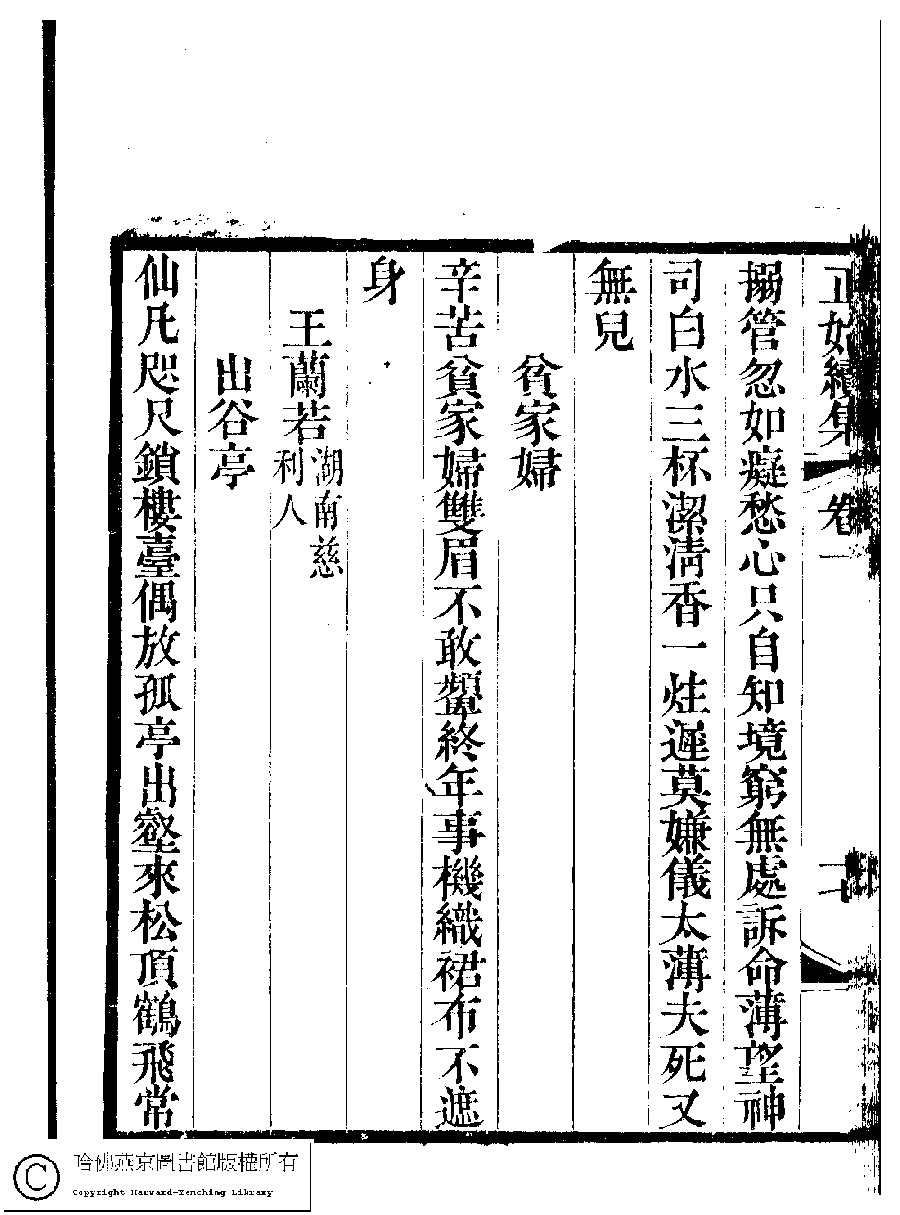 正始續集 卷一
搦管忽如癡愁心只自知境窮無處訴命薄望神
司白水三杯潔淸香一炷遲莫嫌儀太薄夫死又
無兒
貧家婦
辛苦貧家婦雙眉不敢顰終年事機織裙布不遮
身
王蘭若 湖南慈
利人
出谷亭
仙凡咫尺鎖樓臺偶放孤亭出壑來松頂鶴飛常
哈佛燕京圖書館版權所有
Copyright Harvard-Yenching Library